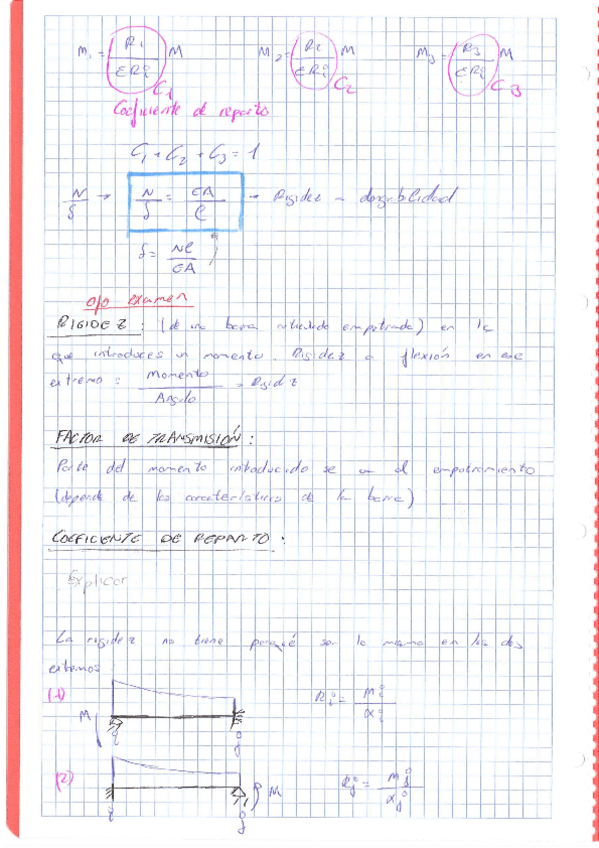 M₁ = R₁/ΣRi M M₂ = R₂/ΣRi M M₃ = R₃/ΣRi M
C₁ C₂ C₃
Coeficiente de reparto
C₁ + C₂ + C₃ = 1
N/δ → N/δ = EA/l → Rigidez
δ = Nl/EA
o/o examen
RIGIDEZ : (de una barra empotrada) en la
que introduces un momento. Rigidez a flexión en ese
extremo = Momento/Angulo = Rigidez
FACTOR DE TRANSMISIÓN :
Parte del momento introducido se va al empotramiento
(depende de las características de la barra)
COEFICIENTE DE REPARTO :
Explicar
La rigidez no tiene porqué ser la misma en los dos
extremos
(1) M i j Ri = Mi/αi
(2) M i j Rj = Mj/αj